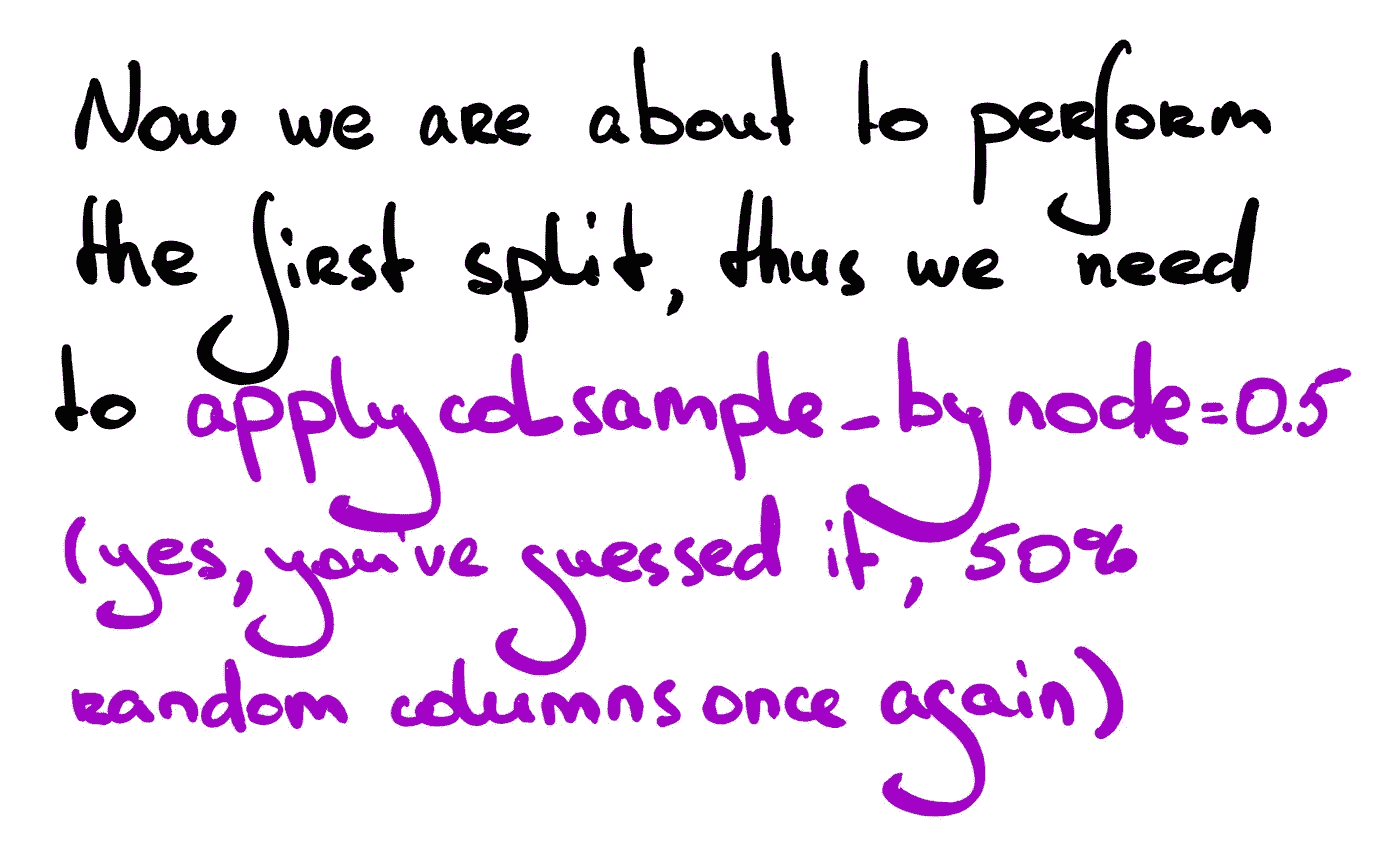 Now we are about to perform
the first split, thus we need
to apply colsample_bynode=0.5
(yes, you've guessed it, 50%
random columns once again)